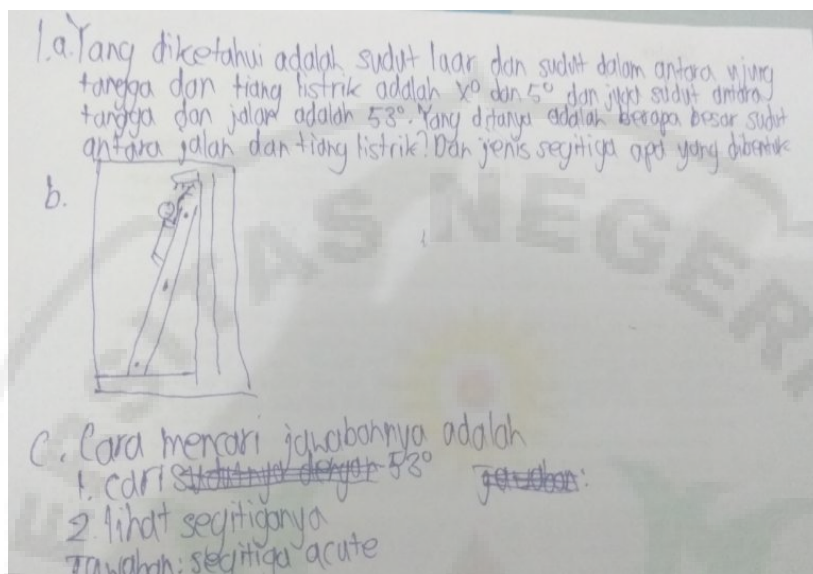 1.a. Yang diketahui adalah sudut luar dan sudut dalam antara ujung
tangga dan tiang listrik adalah x° dan 5° dan juga sudut antara
tangga dan jalan adalah 53°. Yang ditanya adalah berapa besar sudut
antara jalan dan tiang listrik? Dan jenis segitiga apa yang dibentuk
b.
C. Cara mencari jawabannya adalah
1. cari 53°
2. lihat segitiganya
Jawaban: segitiga acute
TAS NEGERI